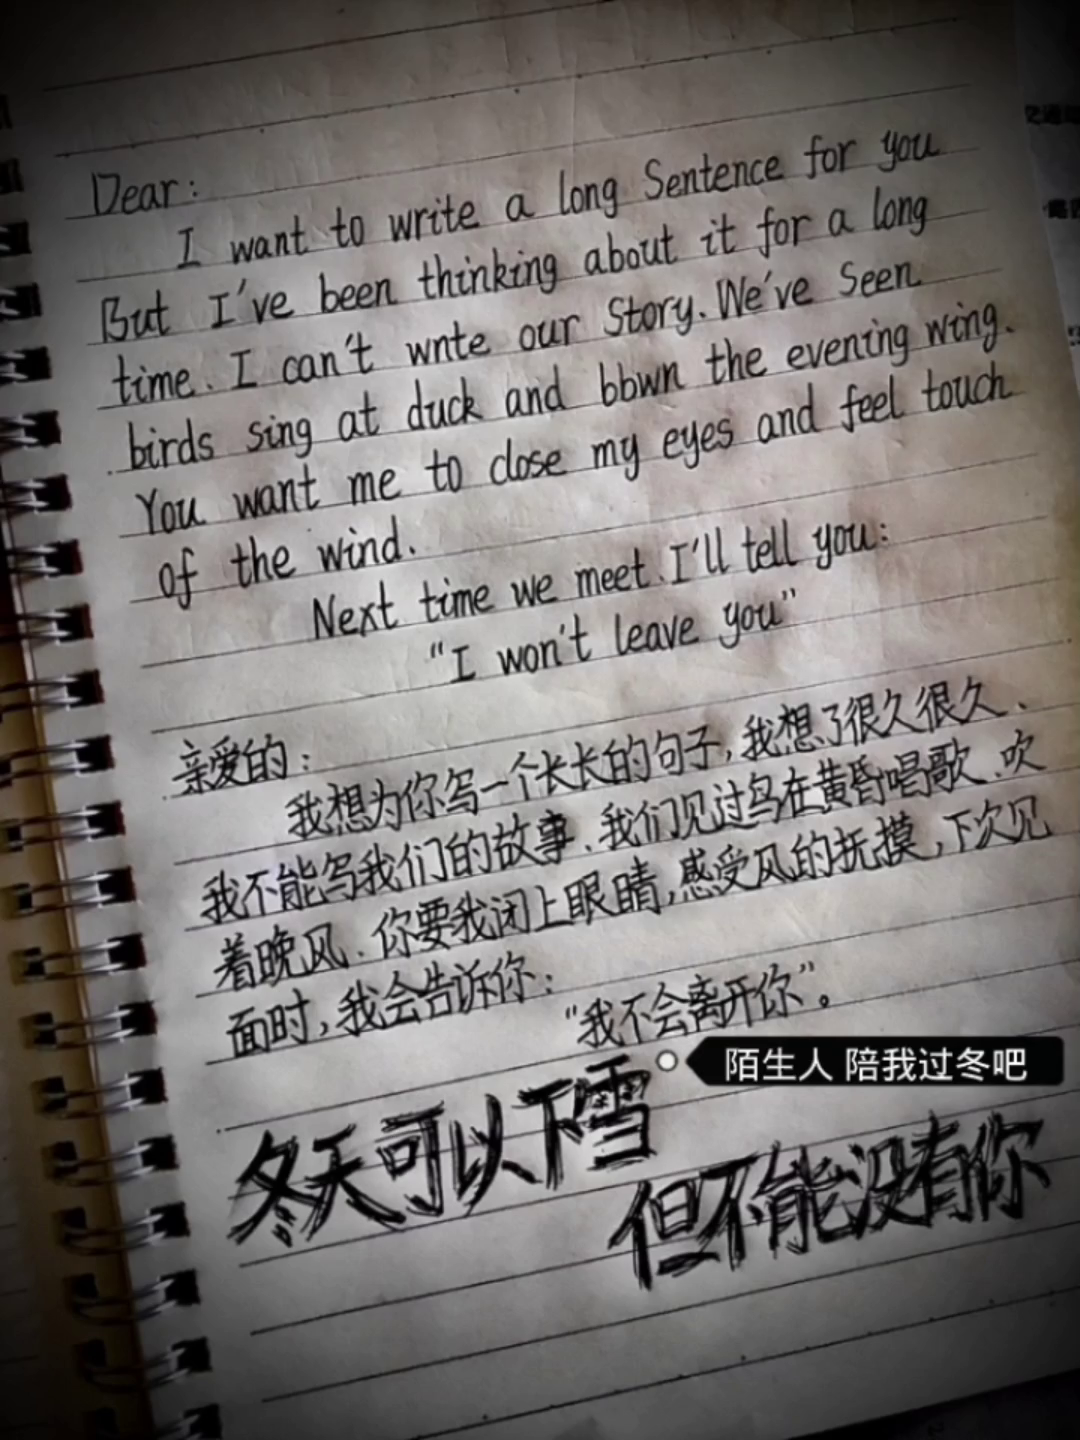 Dear:
I want to write a long Sentence for you
But I've been thinking about it for a long
time. I can't wnte our Story. We've Seen
birds sing at duck and bbwn the evening wing.
You want me to close my eyes and feel touch
of the wind.
Next time we meet. I'll tell you:
"I won't leave you"
亲爱的：
我想为你写一个长长的句子，我想了很久很久、
我不能写我们的故事、我们见过鸟在黄昏唱歌、吹
着晚风、你要我闭上眼睛，感受风的抚摸，下次见
面时，我会告诉你：
“我不会离开你”。
陌生人 陪我过冬吧
冬天可以下雪
但不能没有你